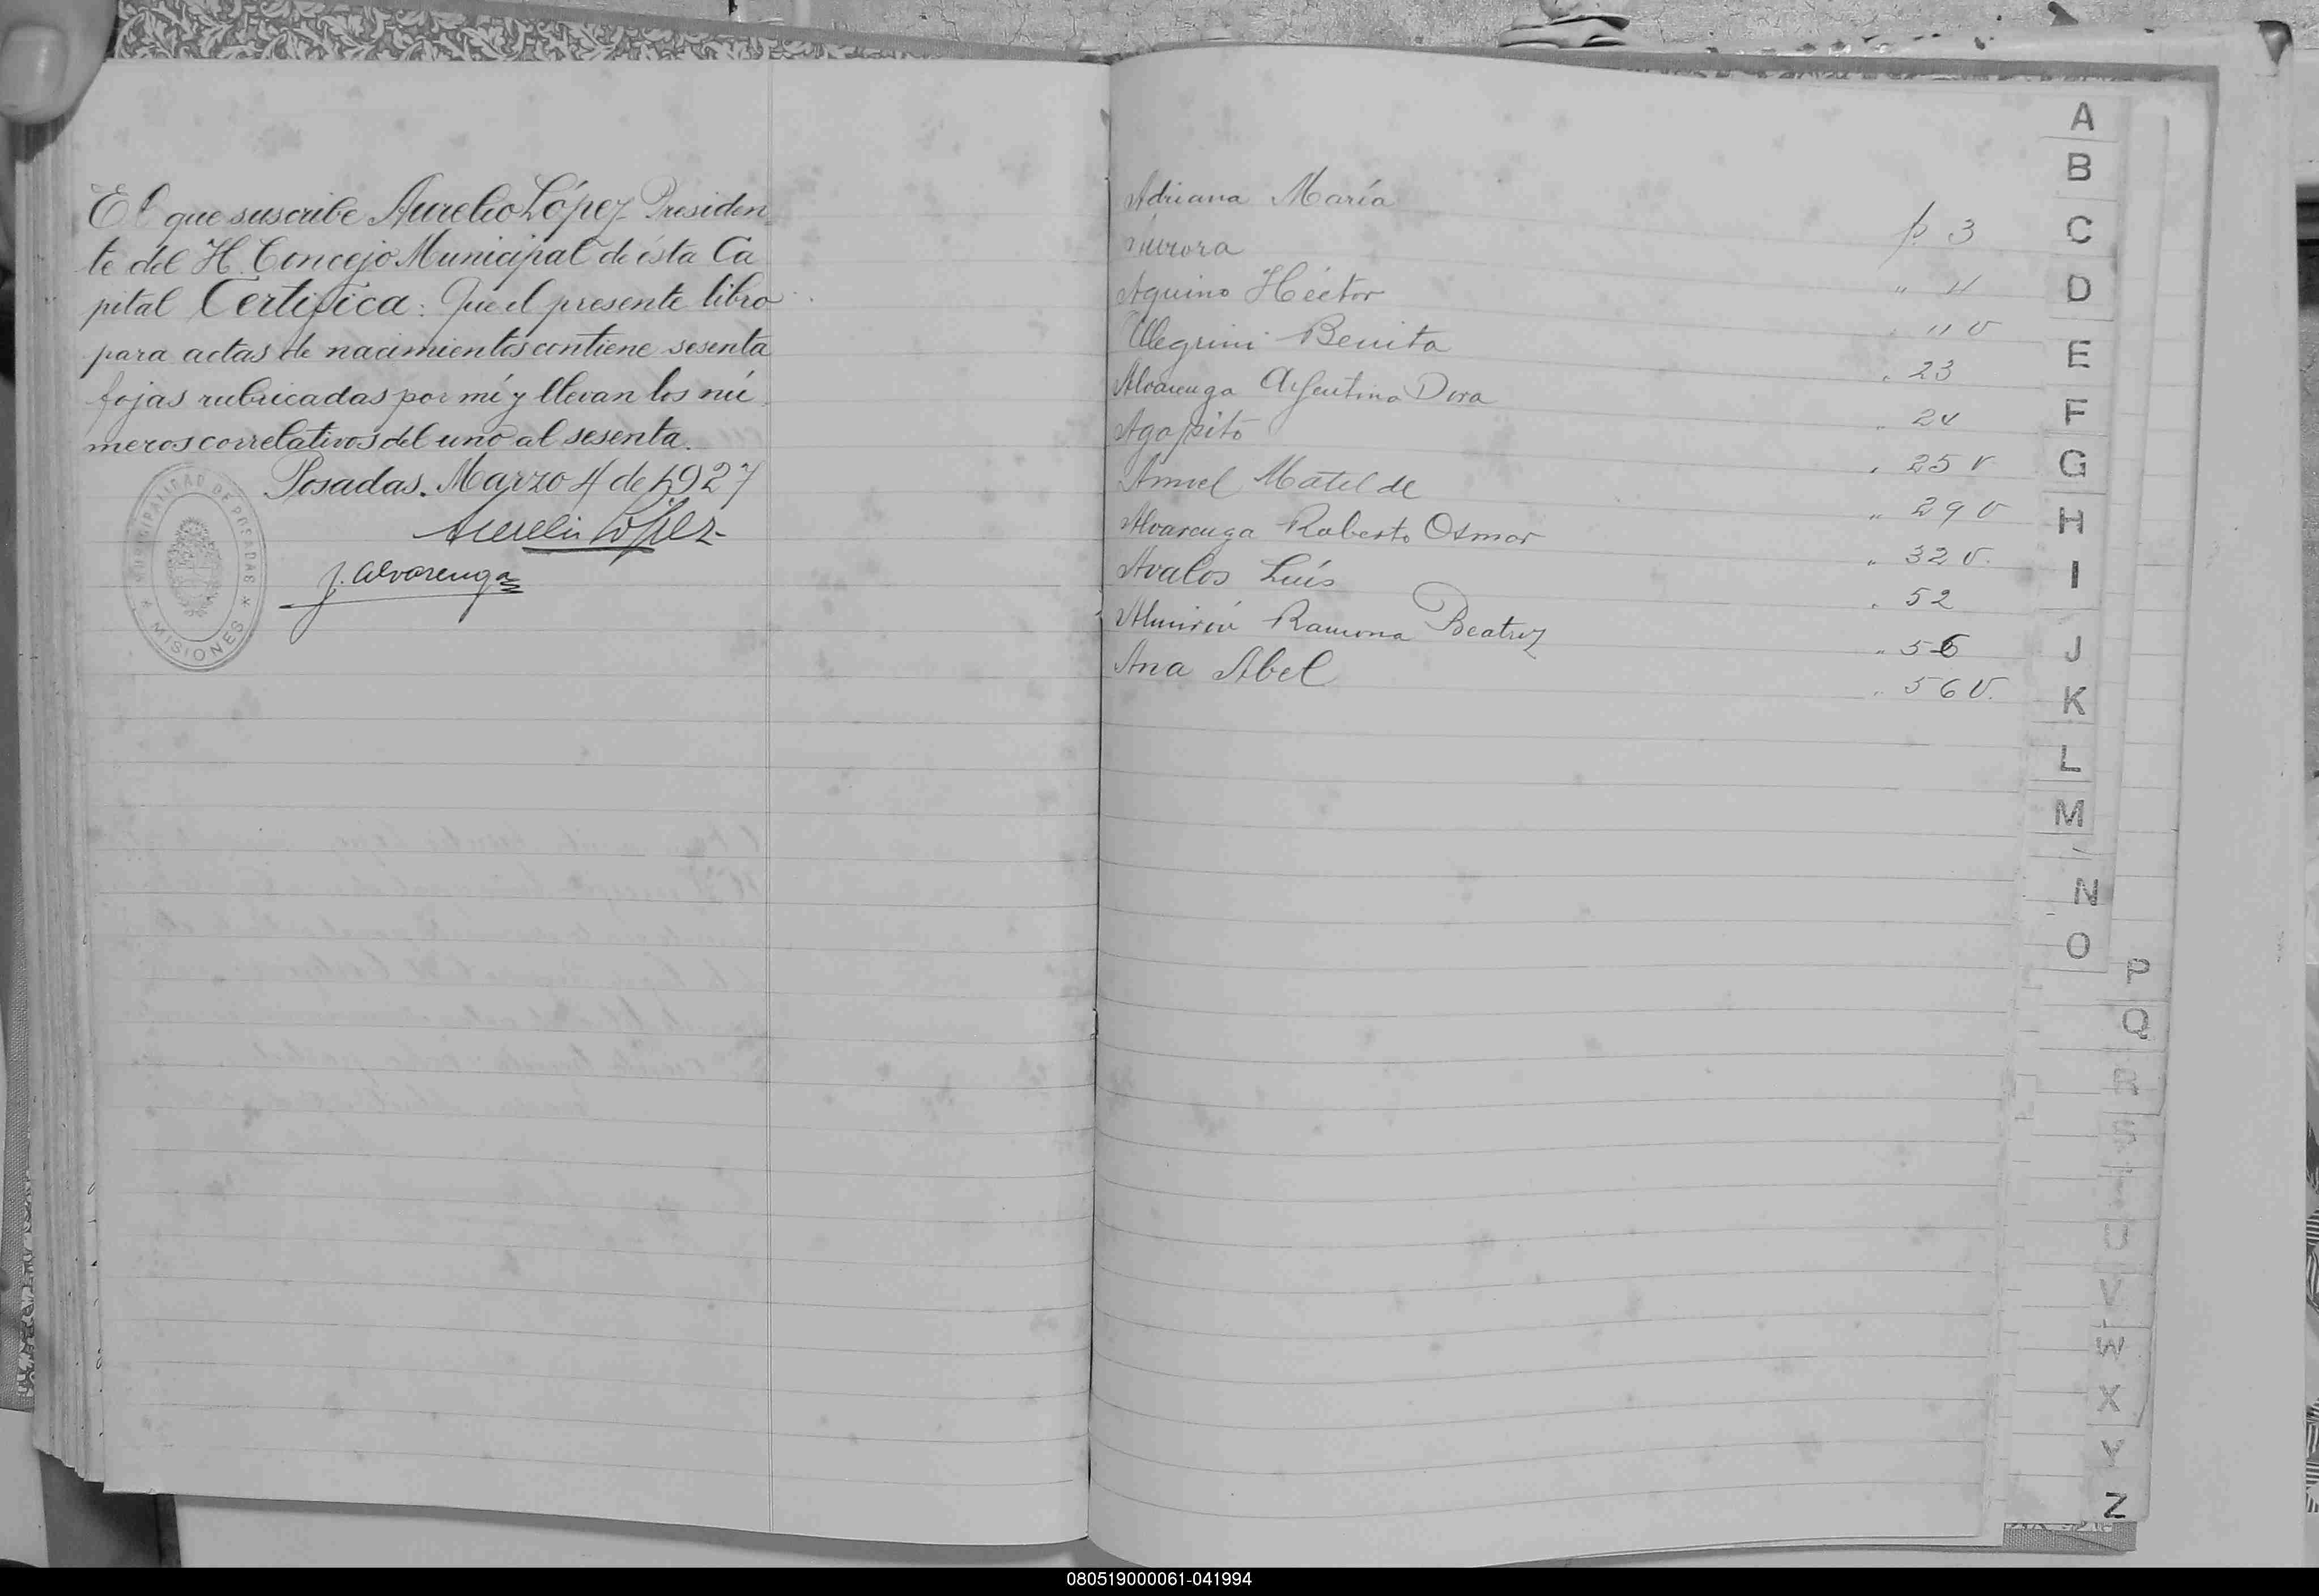 El que suscribe Aurelio López Presiden
te del H. Concejo Municipal de ésta Ca
pital Certifica: Que el presente libro
para actas de nacimientos contiene sesenta
fojas rubricadas por mí y llevan los nú
meros correlativos del uno al sesenta.
Posadas. Marzo 4 de 1927
Aurelio López
J. Alvarenga
MUNICIPALIDAD DE POSADAS * MISIONES *
Adriana María p. 3
Aurora " 11
Aquino Héctor " 11 v
Allegrini Benita " 23
Alvarenga Argentina Dora " 24
Agapito " 25 v
Matilde " 29 v
Alvarenga Roberto Osmar " 32 v.
Avalos Luís " 52
Almirón Ramona Beatriz " 56
Ana Abel " 56 v.
A
B
C
D
E
F
G
H
I
J
K
L
M
N
O
P
Q
R
S
U
V
W
X
Y
Z
080519000061-041994